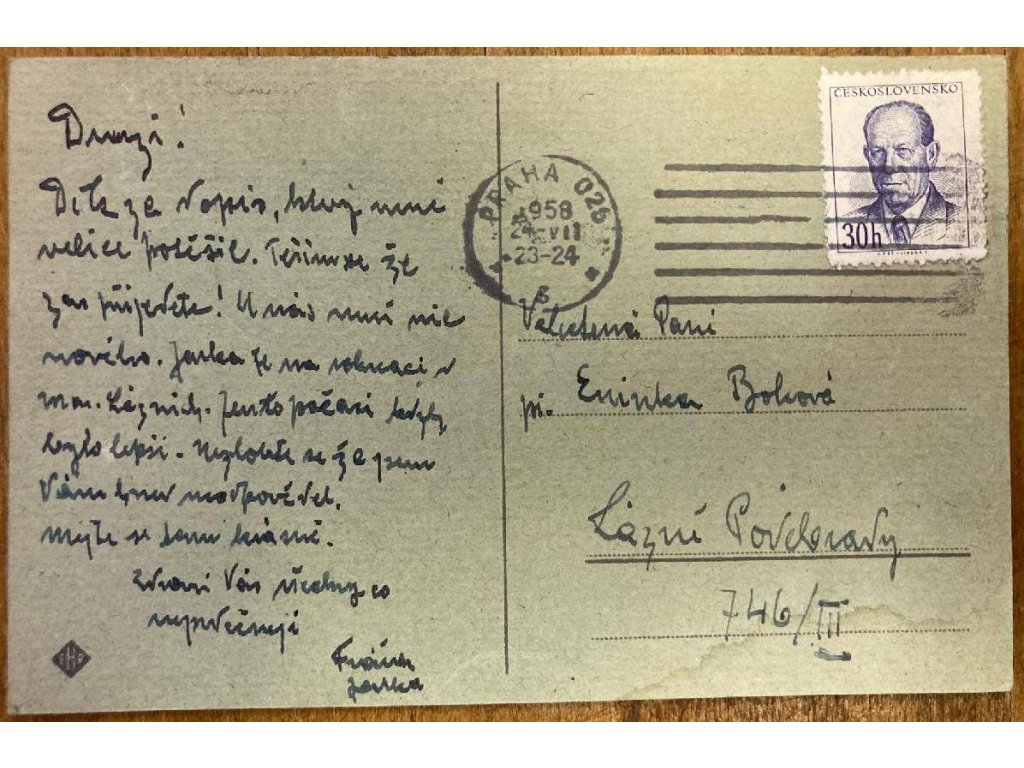 Drazí!
Dík za dopis, který mně
velice potěšil. Těším se že
zas přijedete! U nás není nic
nového. Jarka je na rekreaci v
Mar. Lázních. Jen to počasí kdyby
bylo lepší. Nezlobte se že jsem
Vám hned neodpověděl.
Mějte se tam krásně.
Zdraví Vás všechny co
nejsrdečněji
Fráňa
Jarka
PRAHA 025
1958
24-VII
23-24
ČESKOSLOVENSKO
30h
Vážená Paní
pí.
Boková
Lázně Poděbrady
746/III